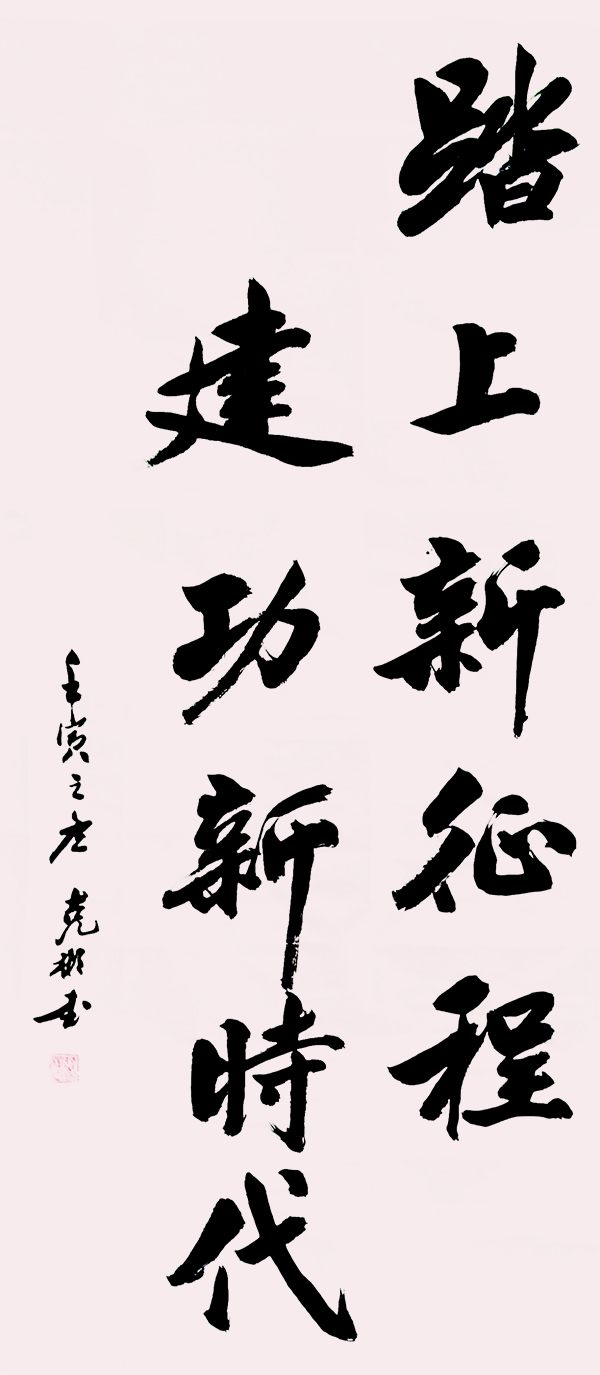 踏上新征程
建功新時代
壬寅之 克彬书